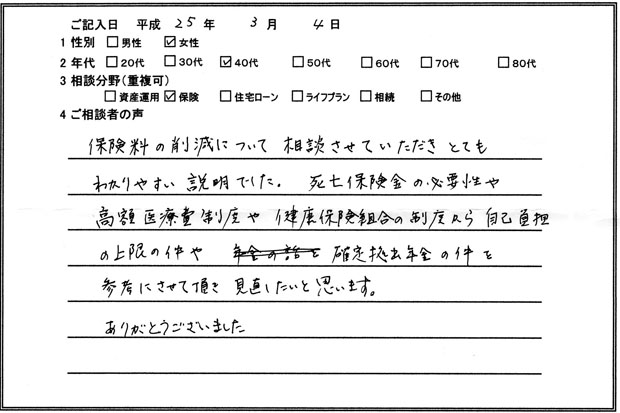 ご記入日 平成 25 年 3 月 4 日
1 性別 □男性 ☑女性
2 年代 □20代 □30代 ☑40代 □50代 □60代 □70代 □80代
3 相談分野(重複可)
□資産運用 ☑保険 □住宅ローン □ライフプラン □相続 □その他
4 ご相談者の声
保険料の削減について 相談させていただき とても
わかりやすい 説明でした。 死亡保険金の必要性や
高額医療費制度や 健康保険組合の制度から 自己負担
の上限の件や 年金の話を 確定拠出年金の件を
参考にさせて頂き 見直したいと思います。
ありがとうございました